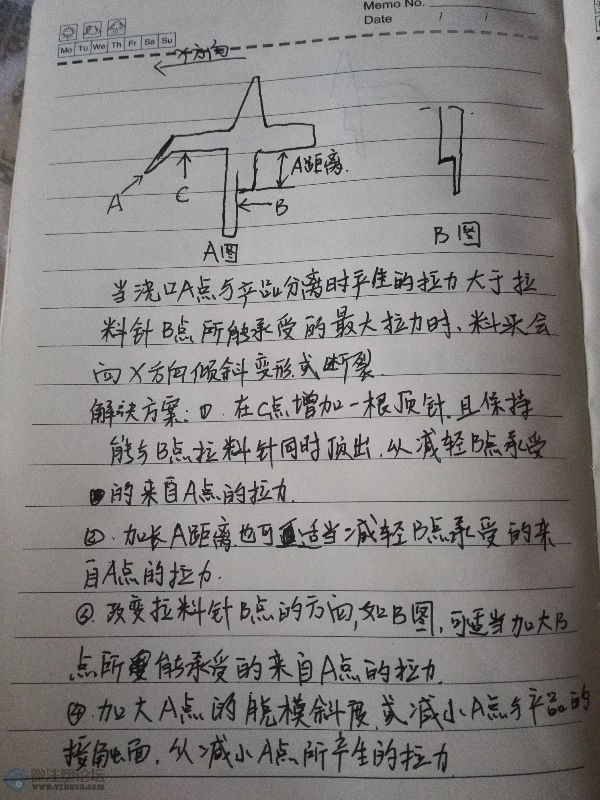 Memo No.
Date / /
Mo Tu We Th Fr Sa Su
X方向
A距离.
A
C
B
A图
B图
当浇口A点与产品分离时产生的拉力大于拉
料针B点所能承受的最大拉力时、料求会
向X方向倾斜变形或断裂.
解决方案: ①. 在C点增加一根顶针.且保持
能与B点拉料针同时顶出.从减轻B点承受
的来自A点的拉力.
②. 加长A距离也可适当减轻B点承受的来
自A点的拉力.
③. 改变拉料针B点的方向,如B图,可适当加大B
点所能承受的来自A点的拉力.
④.加大A点的脱模斜度.或减小A点与产品的
接触面,从减小A点所产生的拉力
微注塑论坛
www.vzhusu.com